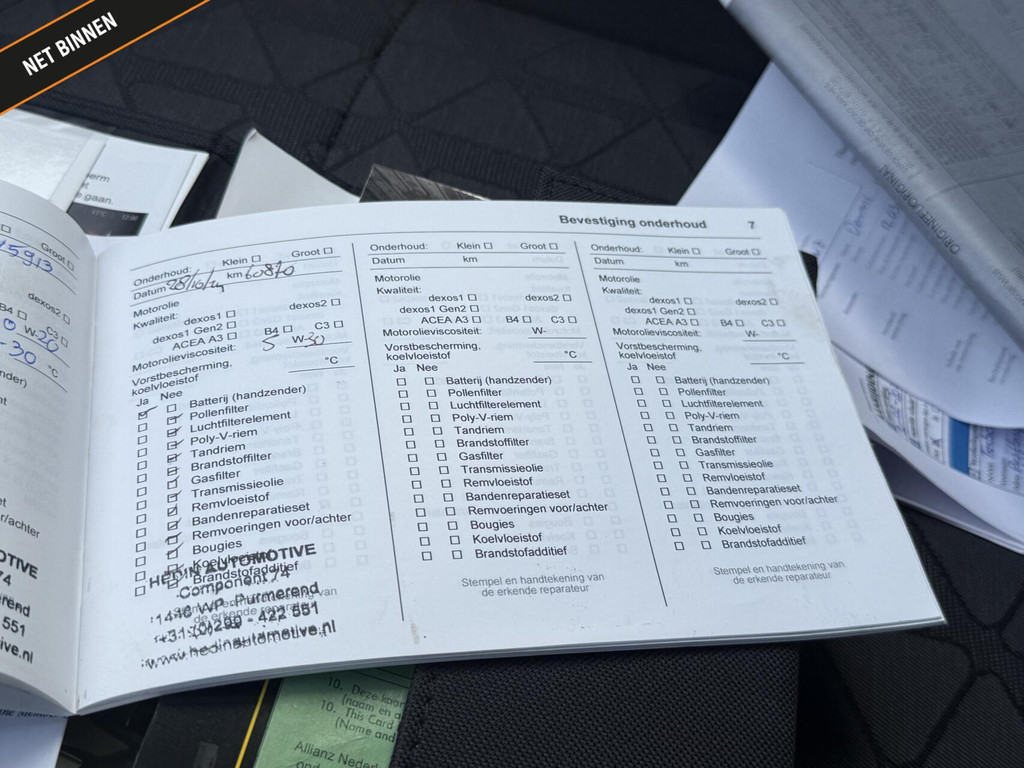 NET BINNEN
erm
t
e gaan.
ORIGINEEL / ORIGINAL
Bevestiging onderhoud 7
Groot
15913
dexos2
B4 C3
W-20
-30
°C
nder)
r/achter
OTIVE
74
erend
551
ive.nl
Onderhoud: Klein Groot
Datum km 60870
Motorolie
Kwaliteit:
dexos1 dexos2
dexos1 Gen2
ACEA A3 B4 C3
Motorolieviscositeit: 5 W-30
Vorstbescherming,
koelvloeistof °C
Ja Nee
Batterij (handzender)
Pollenfilter
Luchtfilterelement
Poly-V-riem
Tandriem
Brandstoffilter
Gasfilter
Transmissieolie
Remvloeistof
Bandenreparatieset
Remvoeringen voor/achter
Bougies
Koelvloeistof
Brandstofadditief
Stempel en handtekening van
de erkende reparateur
HEDIN AUTOMOTIVE
Component 74
1446 WP Purmerend
+31 (0)299 - 422 551
www.hedinautomotive.nl
Onderhoud: Klein Groot
Datum km
Motorolie
Kwaliteit:
dexos1 dexos2
dexos1 Gen2
ACEA A3 B4 C3
Motorolieviscositeit: W-
Vorstbescherming,
koelvloeistof °C
Ja Nee
Batterij (handzender)
Pollenfilter
Luchtfilterelement
Poly-V-riem
Tandriem
Brandstoffilter
Gasfilter
Transmissieolie
Remvloeistof
Bandenreparatieset
Remvoeringen voor/achter
Bougies
Koelvloeistof
Brandstofadditief
Stempel en handtekening van
de erkende reparateur
Onderhoud: Klein Groot
Datum km
Motorolie
Kwaliteit:
dexos1 dexos2
dexos1 Gen2
ACEA A3 B4 C3
Motorolieviscositeit: W-
Vorstbescherming,
koelvloeistof °C
Ja Nee
Batterij (handzender)
Pollenfilter
Luchtfilterelement
Poly-V-riem
Tandriem
Brandstoffilter
Gasfilter
Transmissieolie
Remvloeistof
Bandenreparatieset
Remvoeringen voor/achter
Bougies
Koelvloeistof
Brandstofadditief
Stempel en handtekening van
de erkende reparateur
10. Deze kaar
(naam en a
10. This Card
(Name and
Allianz Nederl